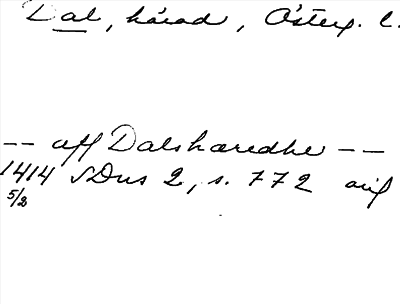 Dal, härad, Österg. l.
-- aff Dalshæredhe --
1414 SDns 2, s. 772 avs
5/2